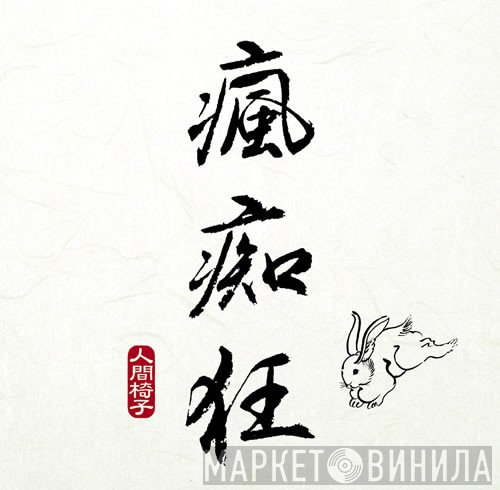 瘋痴狂
人間椅子
МАРКЕТ ВИНИЛА